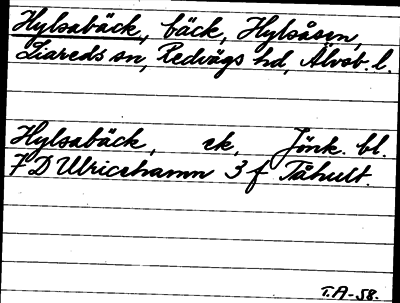 Hylsabäck, bäck, Hylsåsen,
Liareds sn, Redvägs hd, Älvsb. l.
Hylsabäck, ek, Jönk. bl.
7 D Ulricehamn 3 f Tåhult.
T.A-58.